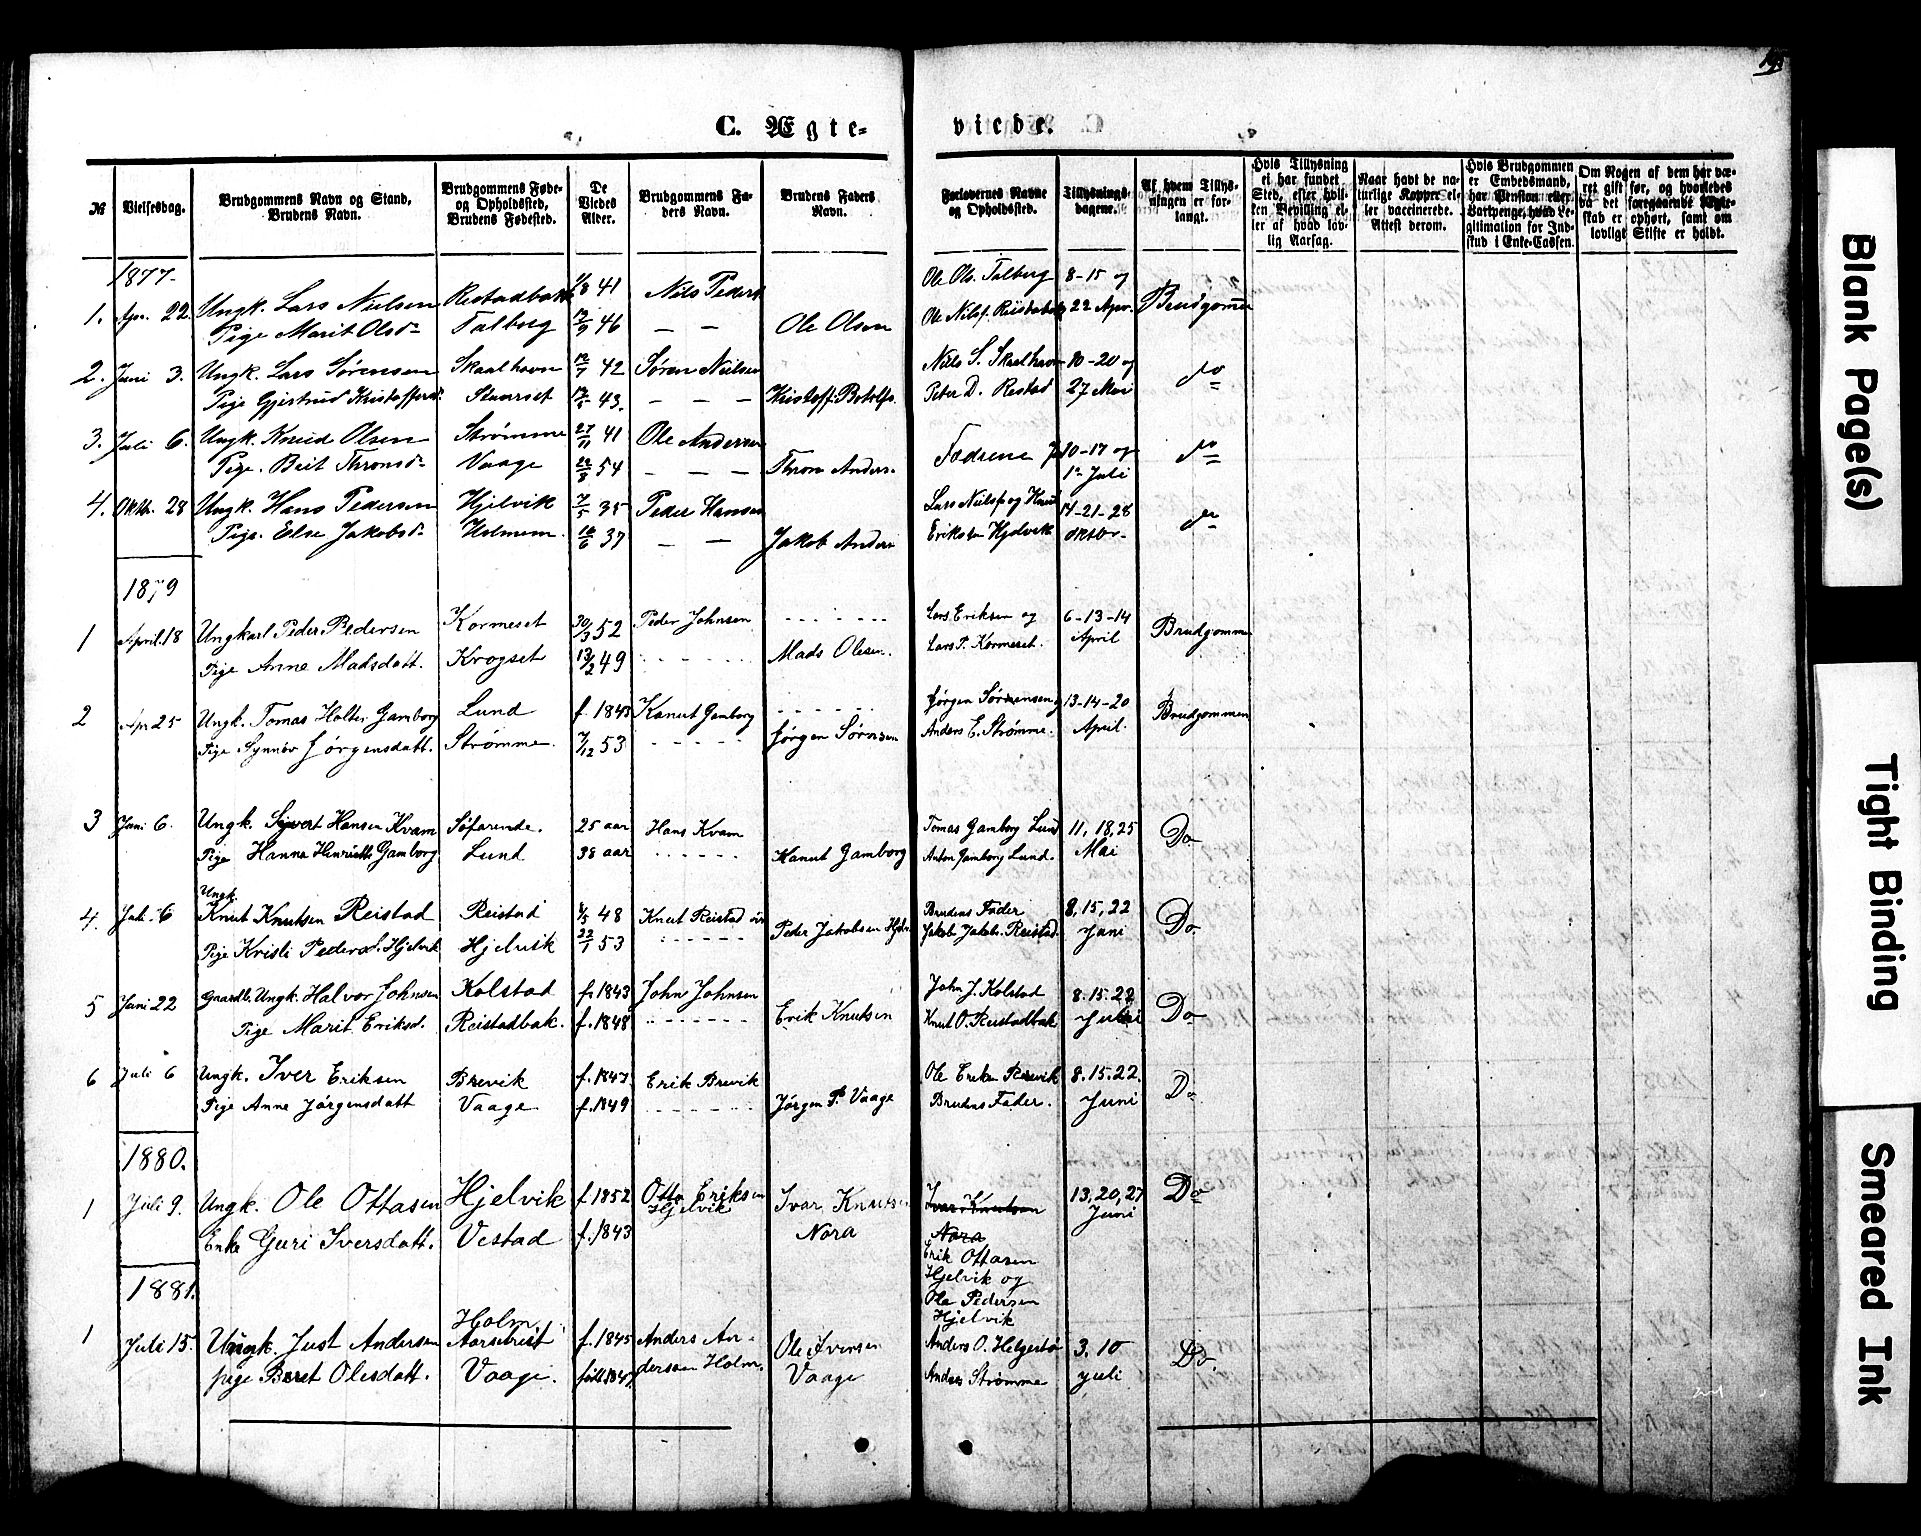 C. Ægte-
viede. C
№
Vielsesdag.
Brudgommens Navn og Stand,
Brudens Navn.
Brudgommens Føde-
og Opholdssted,
Brudens Fødested.
De
Viedes
Alder.
Brudgommens Fa-
ders Navn.
Brudens Faders
Navn.
Forlovernes Navne
og Opholdssted.
Tillysnings-
dagene.
Af hvem Tillys-
ningen er for-
langt.
Hvis Tillysning
ei har fundet
Sted, efter hvil-
ken Bevilling el-
ler af hvad lov-
lig Aarsag.
Naar havt de na-
turlige Kopper el-
ler vaccinerede.
Attest derom.
Hvis Brudgommen
er Embedsmand,
har Pension eller
Vartpenge, hvad Le-
gitimation for Ind-
skud i Enke-Cassen.
Om Nogen af dem har væ-
ret gift før, og hvorledes
da det foregaaende Ægte-
skab er ophørt, samt om
lovligt Skifte er holdt.
1877-
1. Apr. 22. Ungk. Lars Nielsen Restadbak 41 Nils Peders Ole Ols. Talberg 8-15 og Brudgomme
Pige Marit Olsd Talberg 46 — — Ole Olsen Ole Nilss. Reistabak 22 Apr.
2. Juni 3. Ungk. Lars Sørensen Skaalhavn 42 Søren Nielsen Niels S. Skaalhavn 10-20 og do
Pige Gjertrud Kristoffersd. 43. — — — Kristoff. Botolfs. Peter D. Restad 27 Mai
3. Juli 6. Ungk. Knud Olsen Strømme 27/11 41 Ole Andersen Fædrene 10-17 og do
Pige. Brit Thronsd Vaage 22/3 54 — — — Thron Anders. 1 Juli
4. Oktbr. 28 Ungk. Hans Pedersen Hjelvik 7/5 35 Peder Hansen Lars Nielss. og Knud 14-21-28 do
Pige. Else Jakobsd Holmem. 16/6 37 — — Jakob Anders Eriksen Hjelvik oktbr-
1879
1 April. 18 Ungkarl Peder Pedersen Kormeset 30/3 52 Peder Johnsen Lars Eriksen og 6-13-14 Brudgomme
Pige Anne Madsdatt. Krogset 13/2 49 Mads Olesen. Lars P. Kormeset. April
2 Apr 25 Ungk. Tomas Holter Gamborg Lund f. 1843 Kanut Gamborg Jørgen Sørensen og 13-14-20 Brudgommen
Pige Synnøv Jørgensdatt. Strømme. 7/12 53 Jørgen Sørnsen Anders E. Strømme. April.
3 Juni 6. Ungk. Sivert Hansen Kvam Søfarende. 25 aar Hans Kvam Tomas Gamborg Lund 11, 18, 25 Do
Pige Hanna Henriette Gamborg. Lund 38 aar Kanut Gamborg Anton Gamborg Lund. Mai
Ungk.
4. Juli 6 Knut Knutsen Reistad Reistad 48 Knut Reistad Brudens Fader 8, 15, 22 Do
Pige Kristi Pedersd. Hjelvik Hjelvik 22/1 53 Peder Jakobsen Jakob Jakobs. Reistad. Juni
5 Juni 22 Gaardb. Ungk. Halvor Johnsen Kolstad f. 1843 John Johnsen John J. Kolstad 8. 15. 22 Do
Pige Marit Eriksd. Reistadbak. f. 1848 Erik Knutsen Knut O. Reistadbak Juni
6 Juli 6 Ungk. Iver Eriksen Brevik f. 1847 Erik Brevik Ole Erikn Brevik 8. 15. 22. Do
Pige Anne Jørgensdatt Vaage f. 1849 Jørgen P. Vaage Brudens Fader. Juni
1880.
1 Juli 9. Ungk. Ole Ottasen Hjelvik f. 1852 Otto Eriksen Ivar Knutsen Ivar Knutsen 13, 20, 27 Do
Hjelvik Juni
Enke Guri Iversdatt. Vestad f. 1843 Nora Nora
Erik Ottasen
Hjelvik og
Ole Pedersen
Hjelvik
1881.
Holm
1 Juli 15. Ungk. Just Andersen Aarsetvist f. 1845 Anders An- Ole Iversen Anders O. Helgestø 3. 10 Do
pige Beret Olesdatt. Vaage. dersen Holm. Vaage Anders Strømme juli
Blank Page(s)
Tight Binding
Smeared Ink